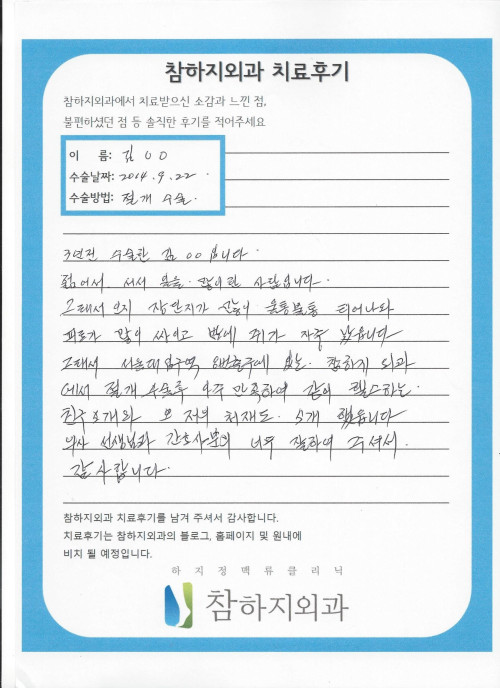 참하지외과 치료후기
참하지외과에서 치료받으신 소감과 느낀 점,
불편하셨던 점 등 솔직한 후기를 적어주세요
이 름: 김 O O
수술날짜: 2014. 9. 22.
수술방법: 절개 수술.
3년전 수술한 김 OO 입니다.
젊어서 서서 일을 많이한 사람입니다.
그래서 인지 장딴지가 울퉁불퉁 튀어나와
피로가 많이 쌓이고 밤에 쥐가 자주 났읍니다
그래서 서울대입구역 있는 참하지 외과
에서 절개 수술후 아주 만족하여 같이
친구 와 또 저의 했읍니다
의사 선생님과 간호사분이 너무 잘하여 주셔서
감사합니다.
참하지외과 치료후기를 남겨 주셔서 감사합니다.
치료후기는 참하지외과의 블로그, 홈페이지 및 원내에
비치 될 예정입니다.
하지정맥류클리닉
참하지외과